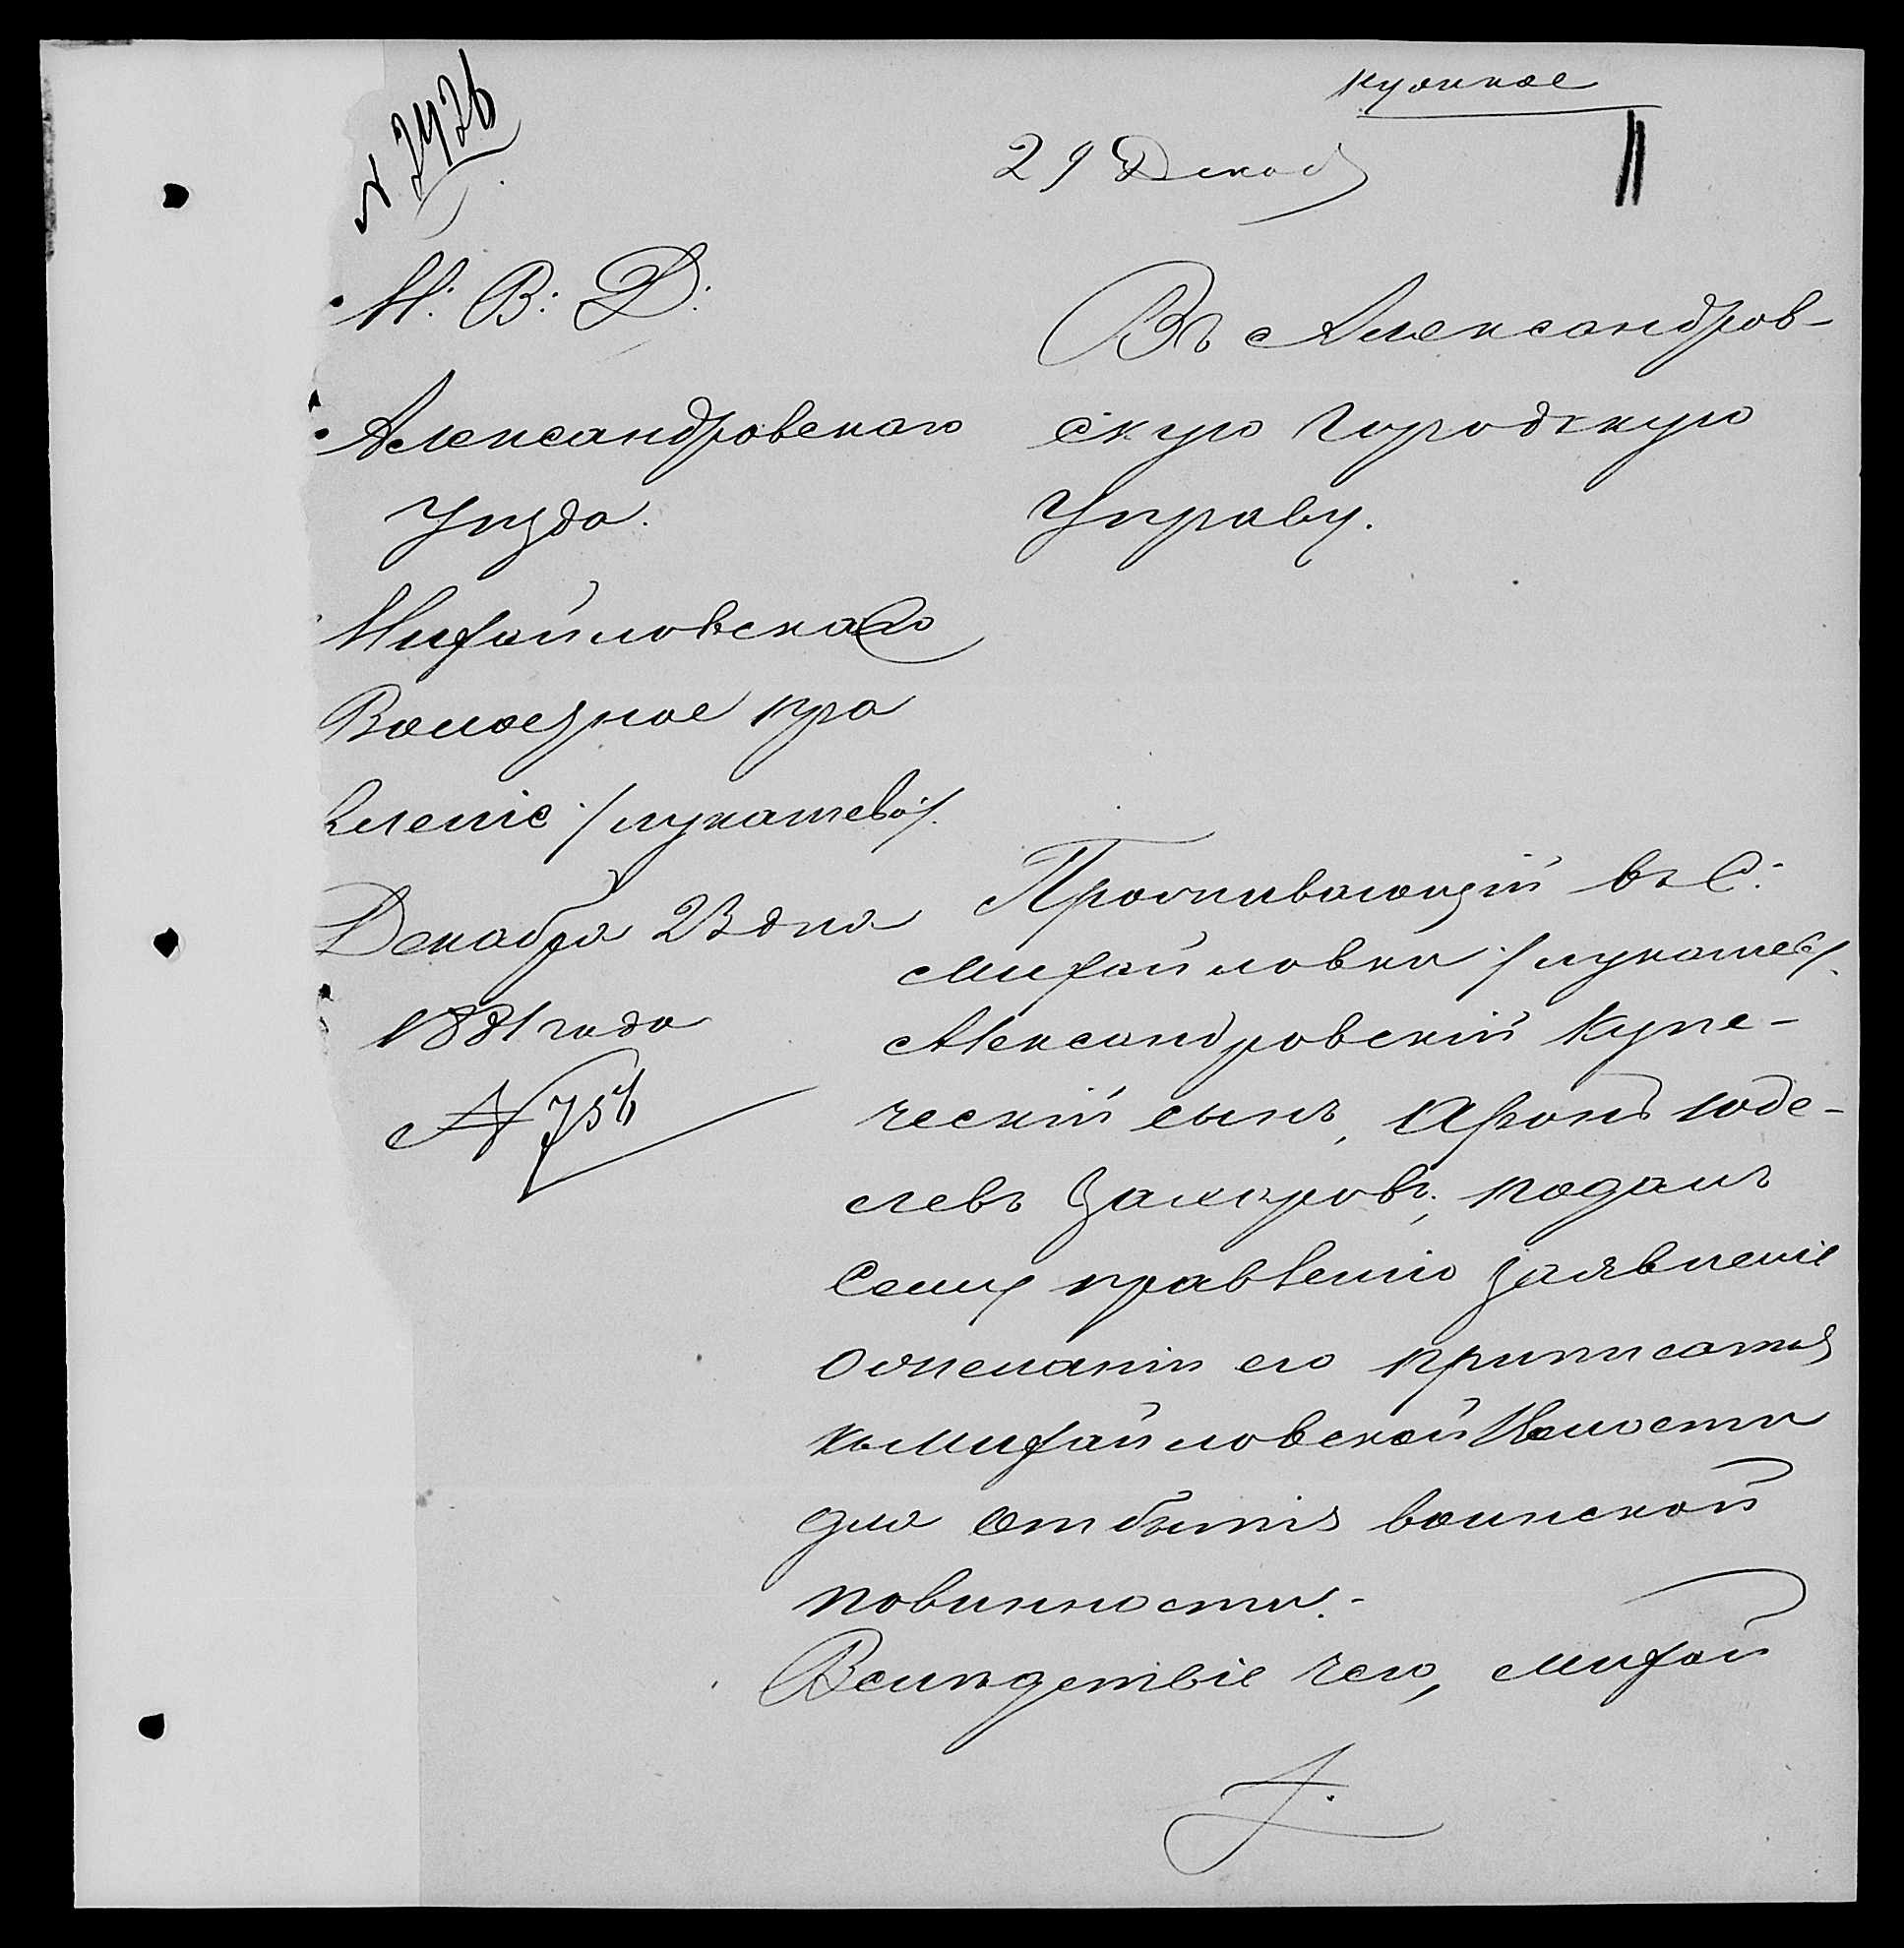 № 2426
29 Декаб
М: В: Д:
Александровскаго
Уѣзда.
Михайловскаго
Волостное пра
вленіе /лукашево/.
Декабря 23 дня
1881 года
№ 756
Въ Александров-
скую Городскую
Управу.
Проживающій въ С:
Михайловки /лукашев/.
Александровскій Купе-
ческій сынъ, Аронъ Юде-
левъ Закировъ, подалъ
Сему правленію заявленіе
ожеланіи его приписатся
къ Михайловской Волости
для отбытія воинской
повинности.-
Вслѣдствіе чего, Михай